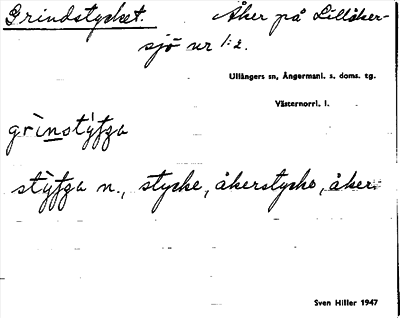 Grindstycket. Åker på Lillåker-
sjö nr 1:2.
Ullångers sn, Ångermanl. s. doms. tg.
Västernorrl. l.
grìnstýƭga
stỳƭga n., stycke, åkerstycke, åker.
Sven Hiller 1947